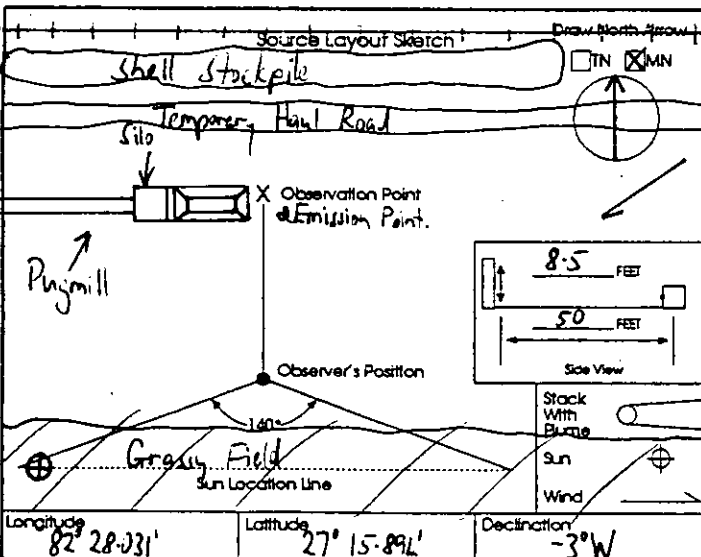 Draw North Arrow
Source Layout Sketch
Shell Stockpile
TN MN
Temporary Haul Road
Silo
X Observation Point
& Emission Point.
Pugmill
8.5 FEET
50 FEET
Side View
Observer's Position
140°
Stack
With
Plume
Sun
Wind
Grassy Field
Sun Location Line
Longitude
82° 28.031'
Latitude
27° 15.892'
Declination
-3°W